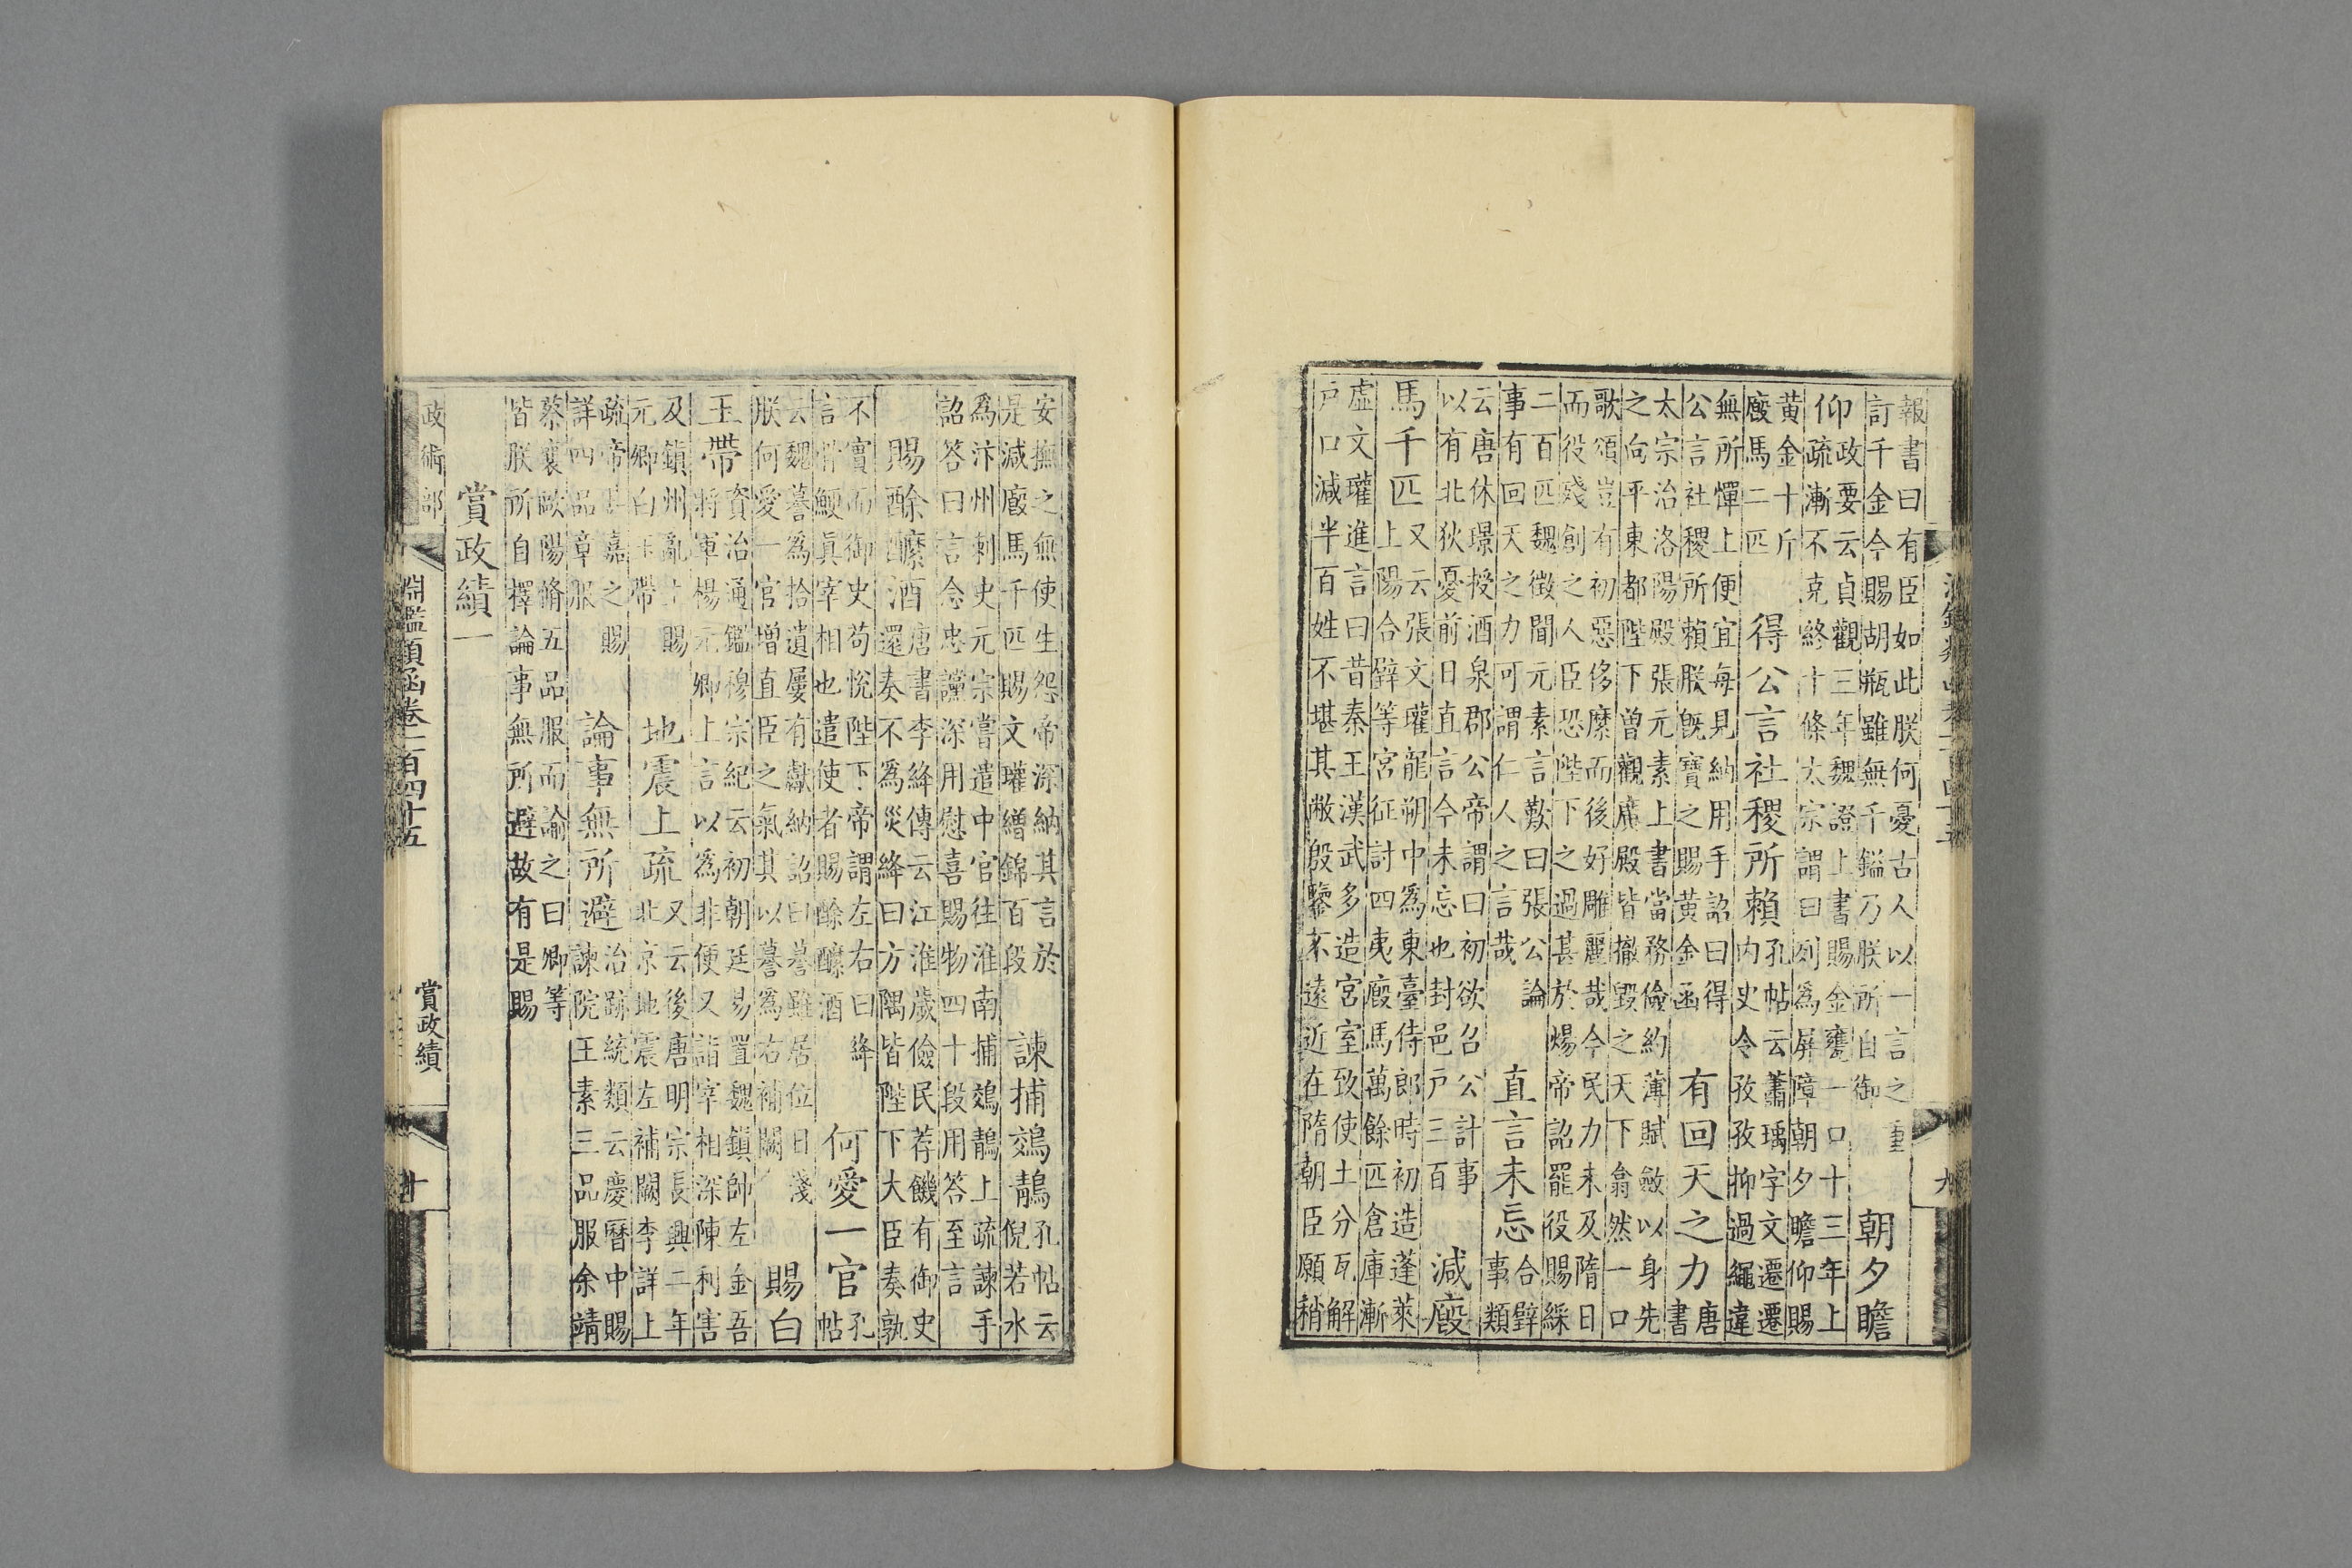 報書曰有臣如此朕何憂古人以一言之重
訂千金今賜胡瓶雖無千鎰乃朕所自御
朝夕瞻
仰
政要云貞觀三年魏證上書賜金甕一口十三年上
疏漸不克終十條太宗謂曰列為屏障朝夕瞻仰賜
黄金十斤
廏馬二匹
得公言社稷所賴
孔帖云蕭瑀字文遷遷
内史令孜孜抑過繩違
無所憚上便宜每見納用手詔曰得
公言社稷所賴朕既寶之賜黄金函
有回天之力
唐
書
太宗治洛陽殿張元素上書當務儉約薄賦斂以身先
之向平東都陛下曾觀廣殿皆撤毁之天下翕然一口
歌頌豈有初惡侈糜而後好雕麗哉今民力未及隋日
而役殘創之人臣恐陛下之過甚於煬帝詔罷役賜綵
二百匹魏徴聞元素言歎曰張公論
事有回天之力可謂仁人之言哉
直言未忘
合璧
事類
云唐休璟授酒泉郡公帝謂曰初欲召公計事
以有北狄憂前日直言今未忘也封邑戸三百
減廏
馬千匹
又云張文瓘龍朔中為東臺侍郎時初造蓬萊
上陽合璧等宮征討四夷廏馬萬餘匹倉庫漸
虚文瓘進言曰昔秦王漢武多造宮室致使土分瓦解
戸口減半百姓不堪其敝殷鑒不遠近在隋朝臣願稍
九
安撫之無使生怨帝深納其言於
是減廏馬千匹賜文瓘繒錦百段
諫捕鵁鶄
孔帖云
倪若水
為汴州刺史元宗嘗遣中官往淮南捕鵁鶄上疏諫手
詔答曰言念忠讜深用慰喜賜物四十段用答至言
賜酴醾酒
唐書李絳傳云江淮歲儉民荐饑有御史
還奏不為災絳曰方隅皆陛下大臣奏孰
不實而御史苟悅陛下帝謂左右曰絳
言骨鯁真宰相也遣使者賜酴醾酒
何愛一官
孔
帖
云魏謩為拾遺屢有獻納詔曰謩雖居位日淺
朕何愛一官增直臣之氣其以謩為右補闕
賜白
玉帶
資治通鑑穆宗紀云初朝廷易置魏鎮帥左金吾
將軍楊元卿上言以為非便又詣宰相深陳利害
及鎮州亂上賜
元卿白玉帶
地震上疏
又云後唐明宗長興二年
北京地震左補闕李詳上
疏帝嘉之賜
詳四品章服
論事無所避
治跡統類云慶曆中賜
諫院王素三品服余靖
蔡襄歐陽脩五品服而諭之曰卿等
皆朕所自擇論事無所避故有是賜
賞政績一
政術部
淵鑑類函卷一百四十五
賞政績
十